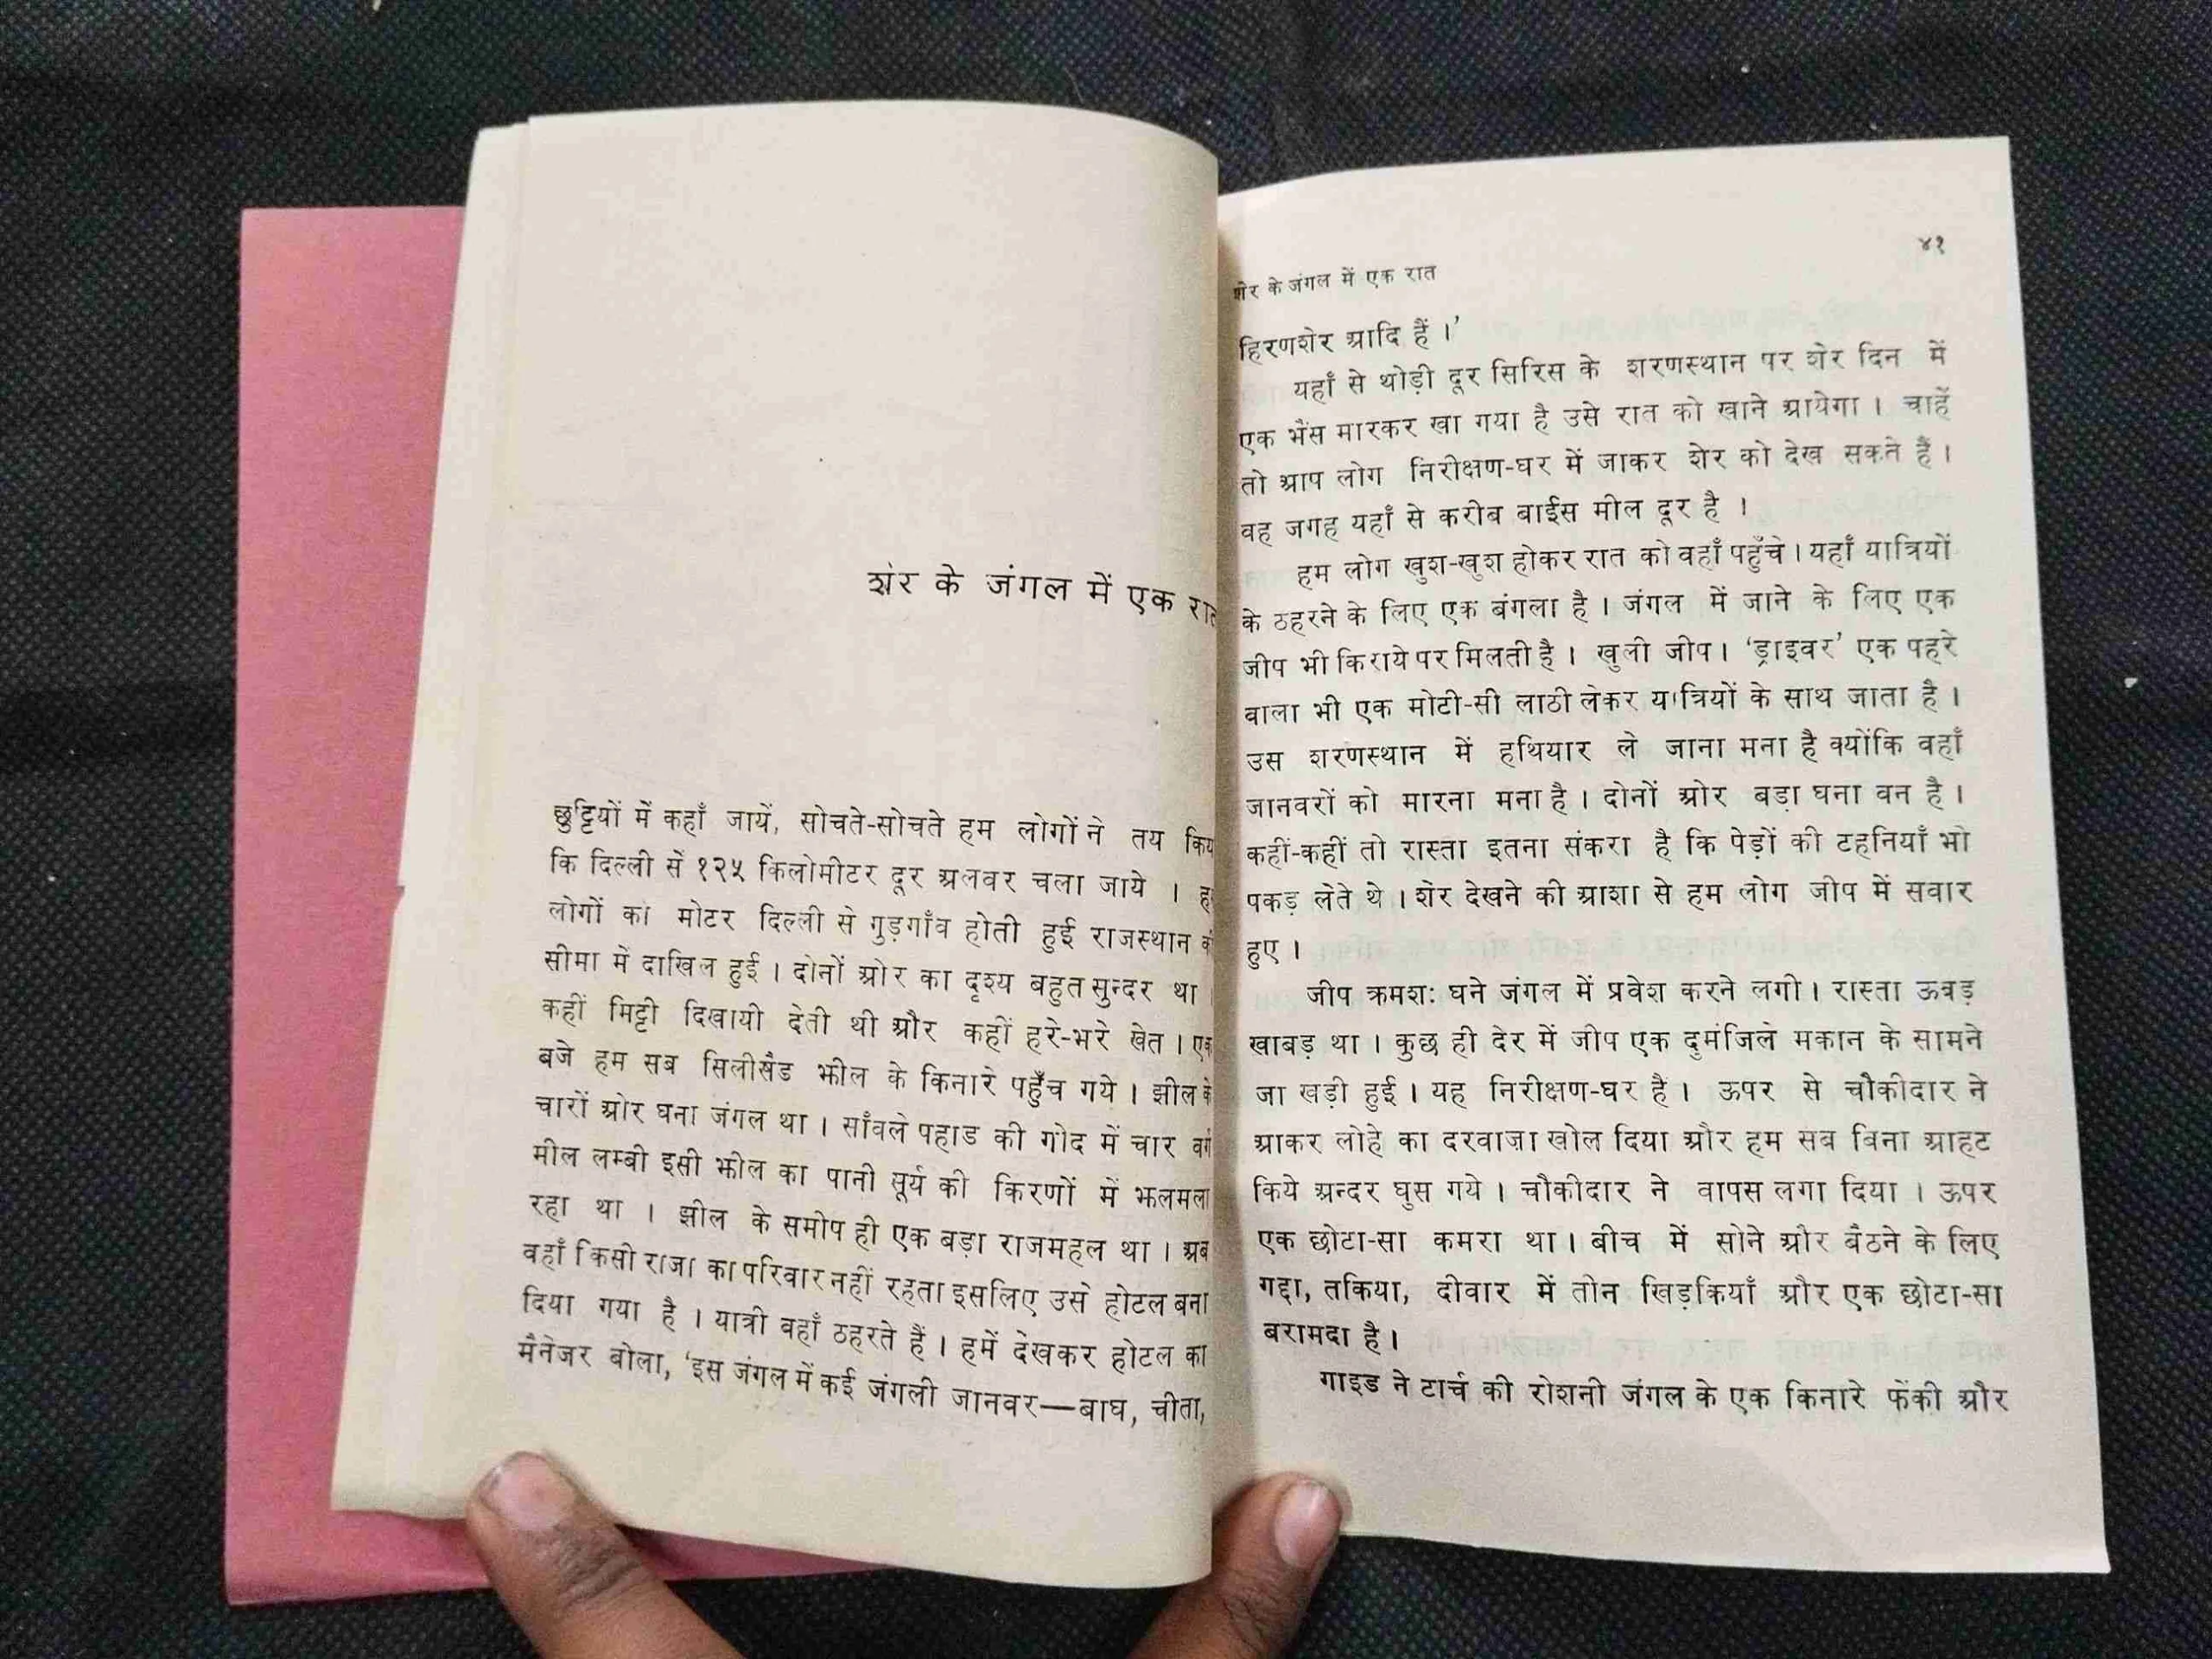 शेर के जंगल में एक रात
छुट्टियों में कहाँ जायें, सोचते-सोचते हम लोगों ने तय
कि दिल्ली से १२५ किलोमीटर दूर अलवर चला जाये ।
लोगों की मोटर दिल्ली से गुड़गाँव होती हुई राजस्थान
सीमा में दाखिल हुई । दोनों ओर का दृश्य बहुत सुन्दर था
कहीं मिट्टी दिखायी देती थी और कहीं हरे-भरे खेत ।
बजे हम सब सिलीसैड झील के किनारे पहुँच गये । झील के
चारों ओर घना जंगल था । साँवले पहाड की गोद में चार वर्ग
मील लम्बी इसी झील का पानी सूर्य की किरणों में झलमला
रहा था । झील के समीप ही एक बड़ा राजमहल था । अब
वहाँ किसी राजा का परिवार नहीं रहता इसलिए उसे होटल बना
दिया गया है । यात्री वहाँ ठहरते हैं । हमें देखकर होटल का
मैनेजर बोला, ‘इस जंगल में कई जंगली जानवर—बाघ, चीता,
शेर के जंगल में एक रात
४१
हिरणशेर आदि हैं ।’
यहाँ से थोड़ी दूर सिरिस के शरणस्थान पर शेर दिन में
एक भैंस मारकर खा गया है उसे रात को खाने आयेगा । चाहें
तो आप लोग निरीक्षण-घर में जाकर शेर को देख सकते हैं ।
वह जगह यहाँ से करीब बाईस मील दूर है ।
हम लोग खुश-खुश होकर रात को वहाँ पहुँचे । यहाँ यात्रियों
के ठहरने के लिए एक बंगला है । जंगल में जाने के लिए एक
जीप भी किराये पर मिलती है । खुली जीप । ‘ड्राइवर’ एक पहरे
वाला भी एक मोटी-सी लाठी लेकर यात्रियों के साथ जाता है ।
उस शरणस्थान में हथियार ले जाना मना है क्योंकि वहाँ
जानवरों को मारना मना है । दोनों ओर बड़ा घना वन है ।
कहीं-कहीं तो रास्ता इतना संकरा है कि पेड़ों की टहनियाँ भी
पकड़ लेते थे । शेर देखने की आशा से हम लोग जीप में सवार
हुए ।
जीप क्रमशः घने जंगल में प्रवेश करने लगी । रास्ता ऊबड़
खाबड़ था । कुछ ही देर में जीप एक दुमंजिले मकान के सामने
जा खड़ी हुई । यह निरीक्षण-घर है । ऊपर से चौकीदार ने
आकर लोहे का दरवाज़ा खोल दिया और हम सब बिना आहट
किये अन्दर घुस गये । चौकीदार ने वापस लगा दिया । ऊपर
एक छोटा-सा कमरा था । बीच में सोने और बैठने के लिए
गद्दा, तकिया, दीवार में तीन खिड़कियाँ और एक छोटा-सा
बरामदा है ।
गाइड ने टार्च की रोशनी जंगल के एक किनारे फेंकी और